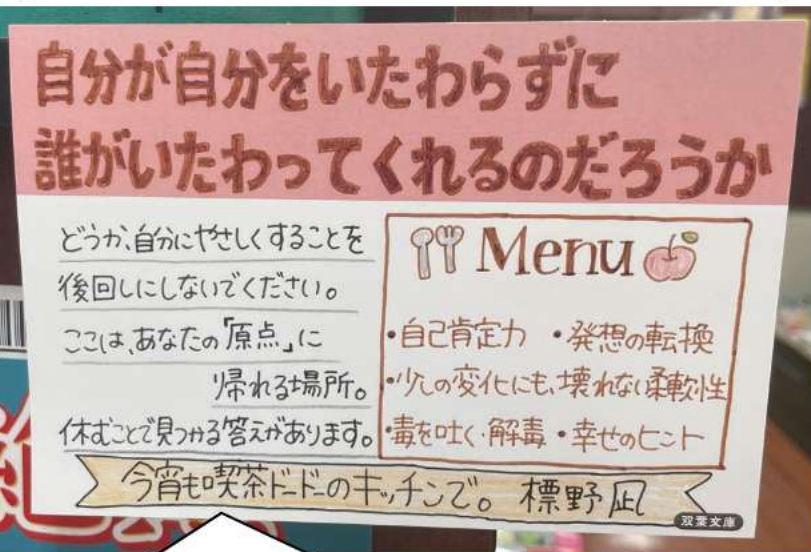 自分が自分をいたわらずに
誰がいたわってくれるのだろうか
どうか、自分にやさしくすることを
後回しにしないでください。
ここは、あなたの「原点」に
帰れる場所。
休むことで見つかる答えがあります。
Menu
・自己肯定力 ・発想の転換
・少しの変化にも、壊れない柔軟性
・毒を吐く・解毒 ・幸せのヒント
今宵も喫茶ドードーのキッチンで。 標野凪
双葉文庫